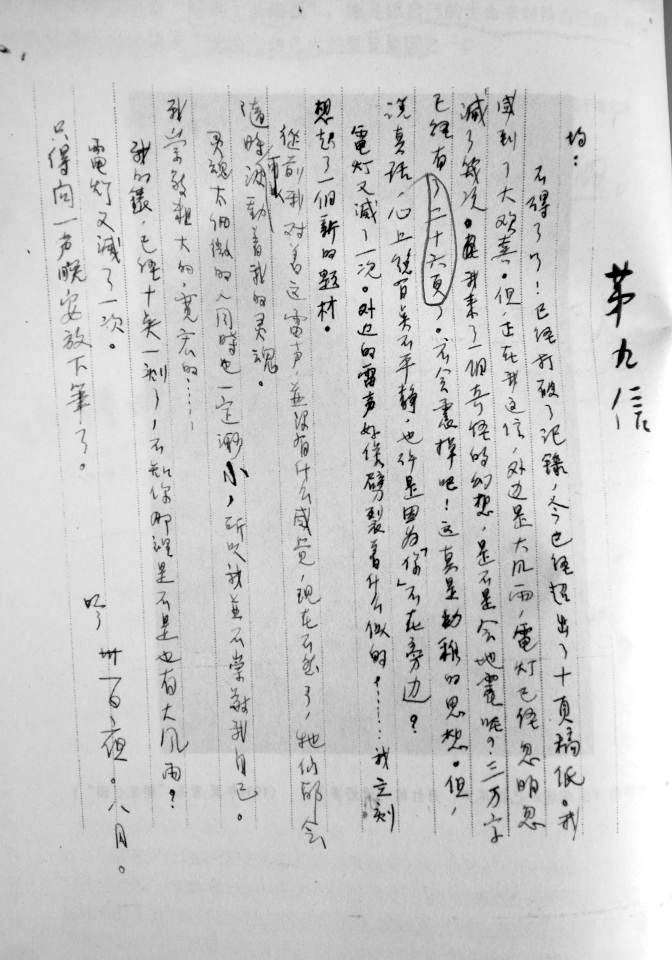 第九信
均：
不得了了！已经打破了记录，今已经超出了十页稿纸。我
感到了大欢喜。但，正在我这信，外边是大风雨，電灯已经忽明忽
滅了幾次。我来了一個奇怪的幻想，是不是会地震呢？三万字
已经有了二十六页了。不会震掉吧！这真是幼稚的思想。但，
说真话，心上总有点不平静，也许是因为「你」不在旁边？
電灯又滅了一次。外边的雷声好像劈裂着什么似的……我立刻
想起了一個新的题材。
從前我对着这雷声，並没有什么感觉，现在不然了，牠们都会
随时波動着我的灵魂。
灵魂太细微的人同时也一定渺小，所以我並不崇敬我自己。
我崇敬粗大的，寬宏的……
我的錶，已经十点一刻了，不知你那裡是不是也有大风雨？
電灯又滅了一次。
只得问一声晚安放下筆了。
吟
卅一日夜。八月。